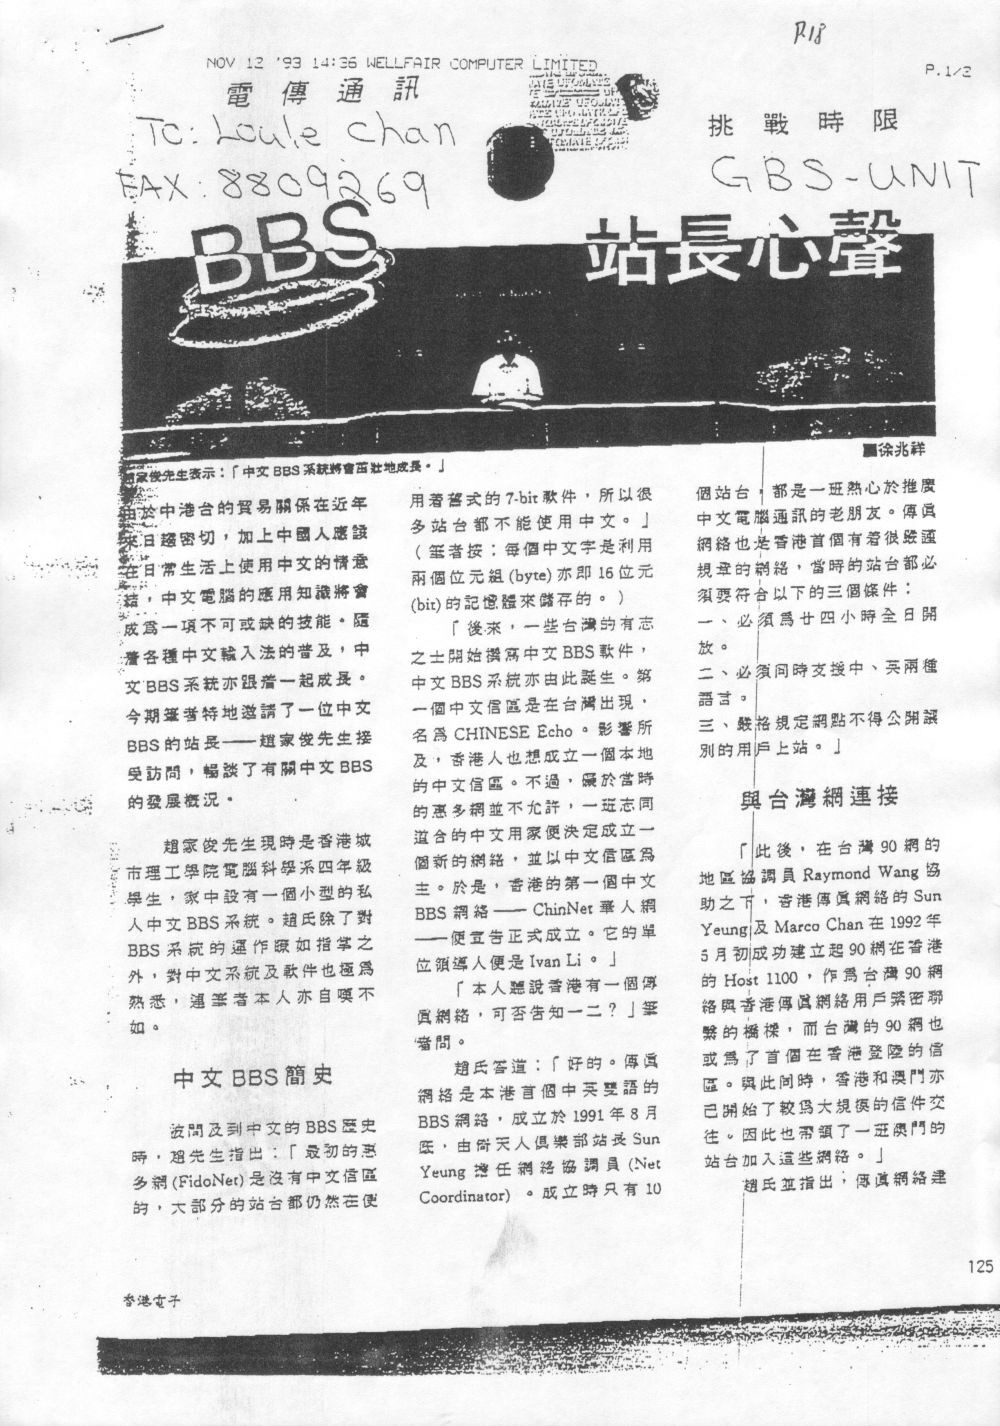 R18
NOV 12 '93 14:36 WELLFAIR COMPUTER LIMITED
P.1/2
電傳通訊
挑戰時限
To: Louie Chan
GBS-UNIT
FAX: 8809269
BBS 站長心聲
徐兆祥
家俊先生表示：「中文 BBS 系統將會茁壯地成長。」
由於中港台的貿易關係在近年
來日趨密切，加上中國人應該
在日常生活上使用中文的情意
結，中文電腦的應用知識將會
成為一項不可或缺的技能。隨
着各種中文輸入法的普及，中
文 BBS 系統亦跟着一起成長。
今期筆者特地邀請了一位中文
BBS 的站長——趙家俊先生接
受訪問，暢談了有關中文 BBS
的發展概況。
趙家俊先生現時是香港城
市理工學院電腦科學系四年級
學生，家中設有一個小型的私
人中文 BBS 系統。趙氏除了對
BBS 系統的運作瞭如指掌之
外，對中文系統及軟件也極為
熟悉，連筆者本人亦自嘆不
如。
中文 BBS 簡史
被問及到中文的 BBS 歷史
時，趙先生指出：「最初的惠
多網 (FidoNet) 是沒有中文信區
的，大部分的站台都仍然在使
用着舊式的 7-bit 軟件，所以很
多站台都不能使用中文。」
（筆者按：每個中文字是利用
兩個位元組 (byte) 亦即 16 位元
(bit) 的記憶體來儲存的。）
「後來，一些台灣的有志
之士開始撰寫中文 BBS 軟件，
中文 BBS 系統亦由此誕生。第
一個中文信區是在台灣出現，
名為 CHINESE Echo。影響所
及，香港人也想成立一個本地
的中文信區。不過，礙於當時
的惠多網並不允許，一班志同
道合的中文用家便決定成立一
個新的網絡，並以中文信區為
主。於是，香港的第一個中文
BBS 網絡——ChinNet 華人網
——便宣告正式成立。它的單
位領導人便是 Ivan Li。」
「本人聽說香港有一個傳
真網絡，可否告知一二？」筆
者問。
趙氏答道：「好的。傳真
網絡是本港首個中英雙語的
BBS 網絡，成立於 1991 年 8 月
底，由倚天人俱樂部站長 Sun
Yeung 擔任網絡協調員 (Net
Coordinator)。成立時只有 10
個站台，都是一班熱心於推廣
中文電腦通訊的老朋友。傳真
網絡也是香港首個有着很嚴謹
規章的網絡，當時的站台都必
須要符合以下的三個條件：
一、必須為廿四小時全日開
放。
二、必須同時支援中、英兩種
語言。
三、嚴格規定網點不得公開識
別的用戶上站。」
與台灣網連接
「此後，在台灣 90 網的
地區協調員 Raymond Wang 協
助之下，香港傳真網絡的 Sun
Yeung 及 Marco Chan 在 1992 年
5 月初成功建立起 90 網在香港
的 Host 1100，作為台灣 90 網
絡與香港傳真網絡用戶緊密聯
繫的橋樑，而台灣的 90 網也
成為了首個在香港登陸的信
區。與此同時，香港和澳門亦
已開始了較為大規模的信件交
往。因此也帶領了一班澳門的
站台加入這些網絡。」
趙氏並指出，傳真網絡建
125
香港電子